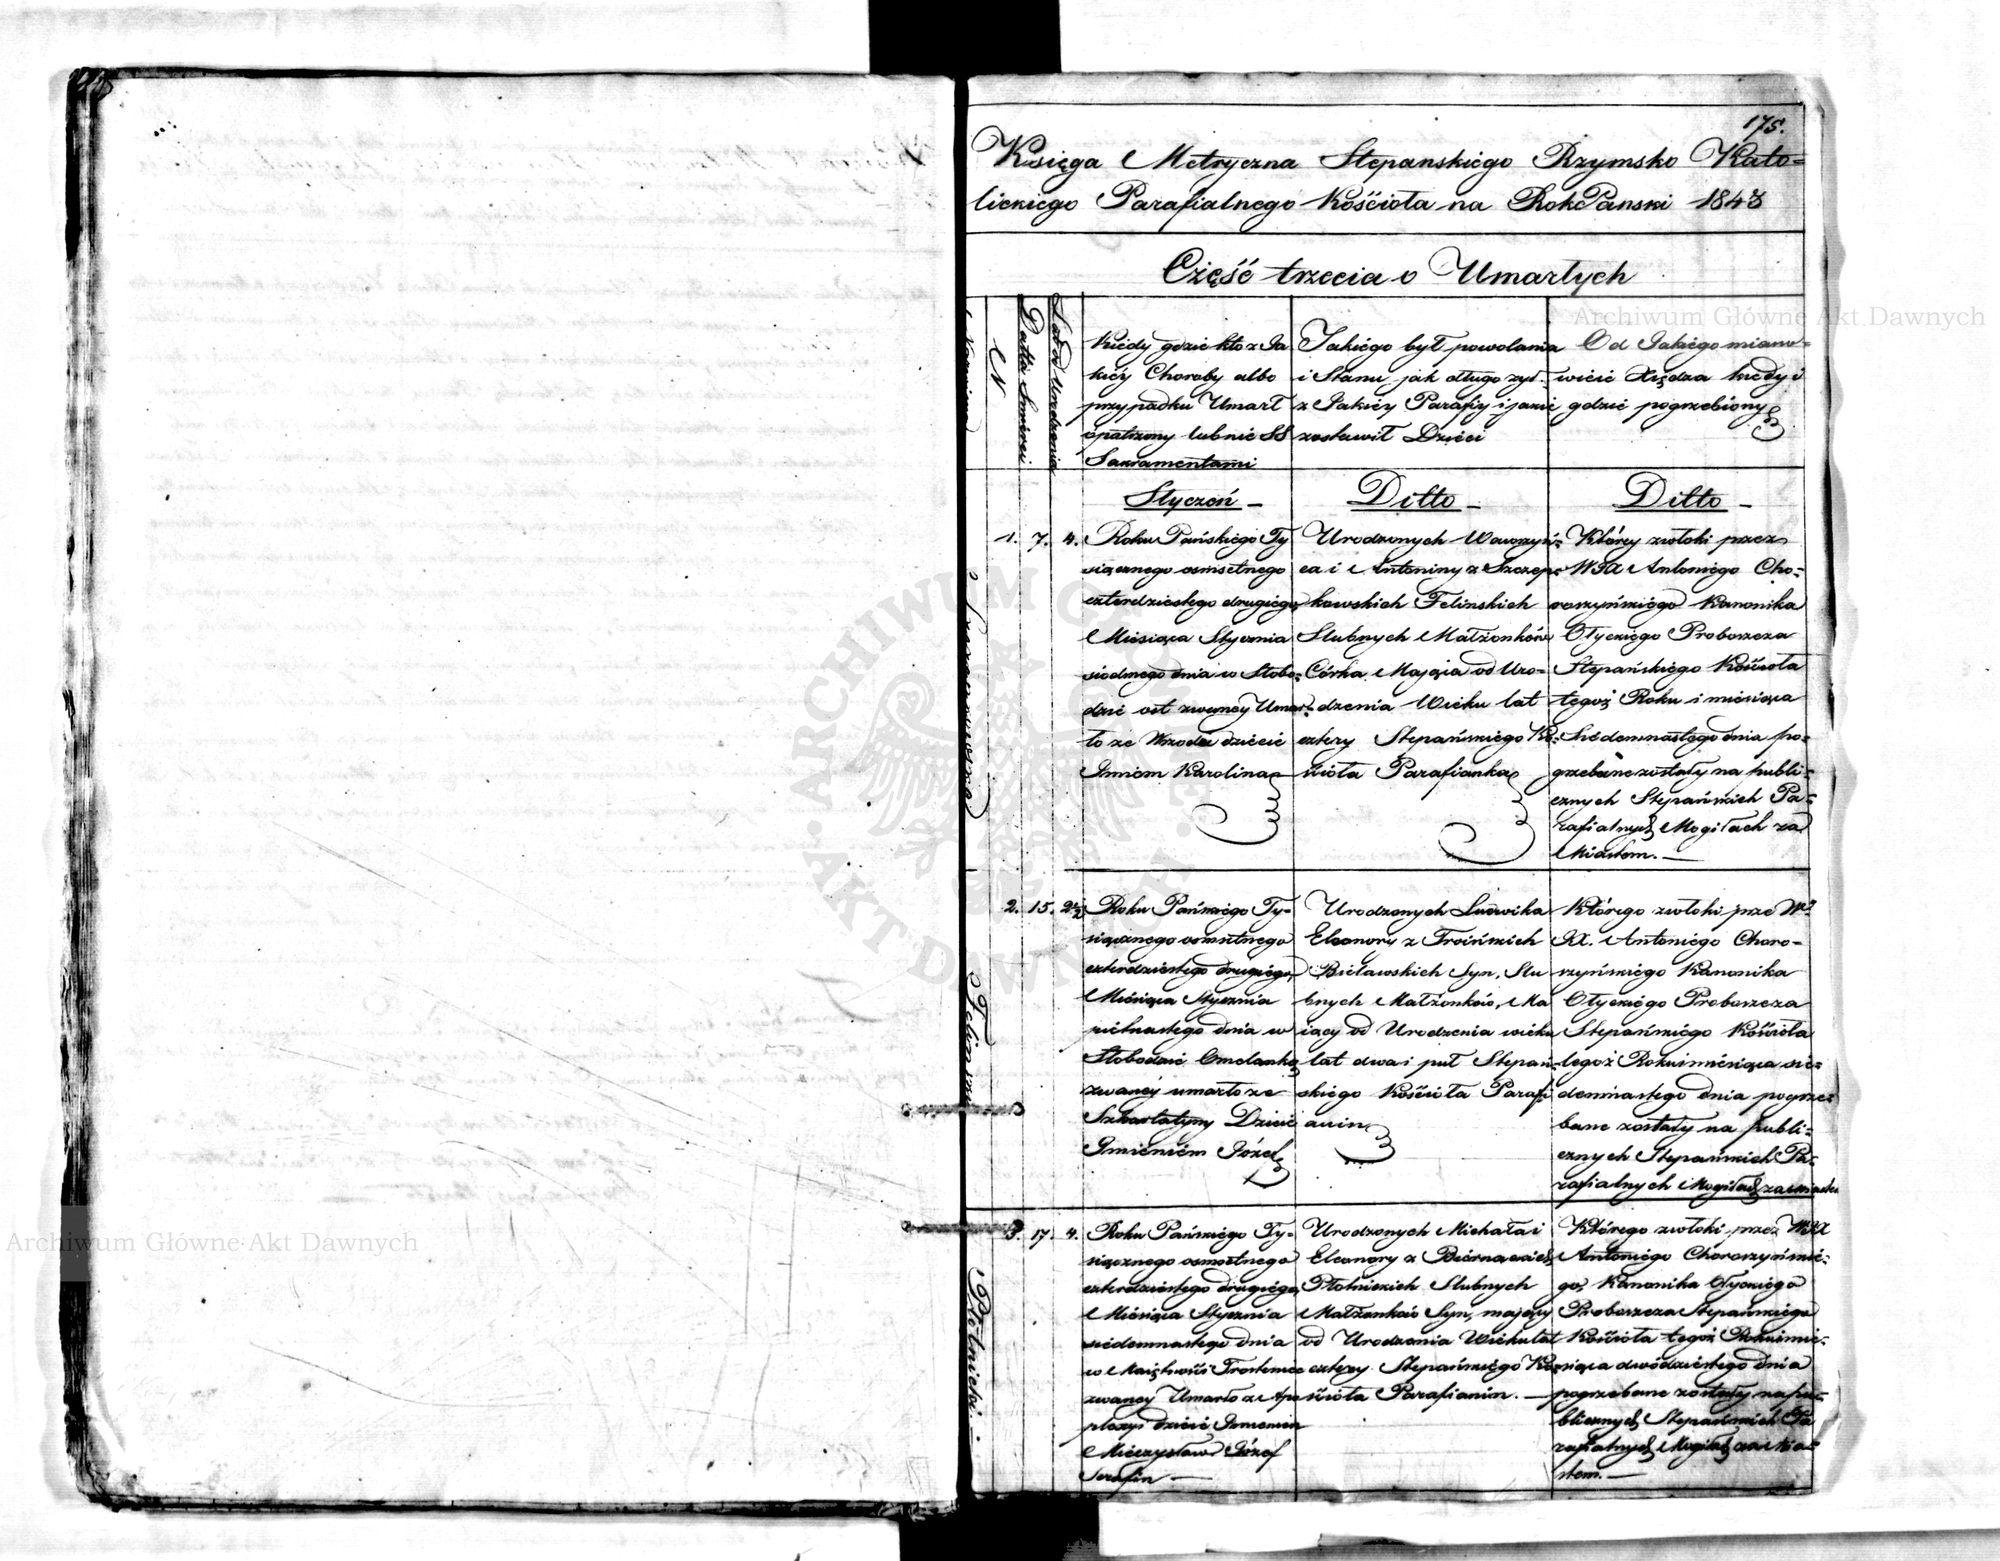 175.
Księga Metryczna Stepanskiego Rzymsko Kato=
lickiego Parafialnego Kościoła na Rok Panski 1843
Część trzecia o Umarłych
N
Datta Smierci
Lat od Urodzenia
Kiedy gdzie kto z Ja
kiéy Choroby albo
przypadku Umarł
opatrzony lub nie SS
Sakramentami
Jakiego był powołania
i Stanu jak długo żył.
z Jakiéy Parafiy i jakie
zostawił Dzieci
Od Jakiego miano=
wicie Xiędza kiedy i
gdzie pogrzebiony
Styczeń –
Ditto –
Ditto –
1. 7. 4.
Roku Pańskiego Ty
siącznego osmsetnego
czterdziestego drugiego
Miesiąca Stycznia
siodmego dnia w Słobo=
dzie zwaney Umar=
ło ze Wrzodu dziecie
Jmiem Karolina
Urodzonych Wawrzyń=
ca i Antoniny z Szczep=
kowskich Felinskich
Slubnych Małżonków
Córka Mająca od Uro=
dzenia Wieku lat
cztery Stepańskiego Ko=
ścioła Parafianka
Któréy zwłoki przez
WJX Antoniego Cho=
roszyńskiego Kanonika
Ołyckiego Proboszcza
Stepańskiego Kościoła
tegoż Roku i miesiąca
Siedemnastego dnia po=
grzebane zostały na publi=
cznych Stepańskich Pa=
rafialnych Mogiłach za
Miastem. —
Felinska
2. 15. 2½
Roku Pańskiego Ty=
siącznego osmsetnego
czterdziestego drugiego
Miesiąca Stycznia
pietnastego dnia w
Słobodzie Omelanka
zwanéy umarło ze
Szkarlatyny Dziecie
Jmieniem Józef
Urodzonych Ludwika
Eleonory z Troińskich
Bielawskich Syn, Slu
bnych Małżonków, Ma
iący od Urodzenia wieku
lat dwa i puł Stepań=
skiego Kościoła Parafi
anin
Którego zwłoki prze W
JX. Antoniego Choro=
szyńskiego Kanonika
Ołyckiego Proboszcza
Stepańskiego Kościoła
tegoż Roku i miesiąca sie=
demnastego dnia pogrze
bane zostały na publi=
cznych Stepańskich Pa=
rafialnych Mogiłach za miastem
Płotnicki.
3. 17. 4.
Roku Pańskiego Ty=
siącznego osmsetnego
czterdziestego drugiego
Miesiąca Stycznia
siedemnastego dnia
w Maiętności
zwaney Umarło z Apo
plexyi dziecie Jmieniem
Mieczysław Józef
Serafin —
Urodzonych Michała i
Eleonory z Biernackich
Płotnickich Slubnych
Małżonków Syn, mający
od Urodzenia Wieku lat
cztery Stepańskiego Ko=
ścioła Parafianin. —
Którego zwłoki przez WJX
Antoniego Choroszyńskie=
go Kanonika Ołyckiego
Proboszcza Stepańskiego
Kościoła tegoż Roku i mie=
siąca dwódziestego dnia
pogrzebane zostały na pu=
blicznych Stepańskich Pa
rafialnych Mogiłach za Mia=
stem. —
Archiwum Główne Akt Dawnych
Archiwum Główne Akt Dawnych
ARCHIWUM GŁÓWNE
AKT DAWNYCH